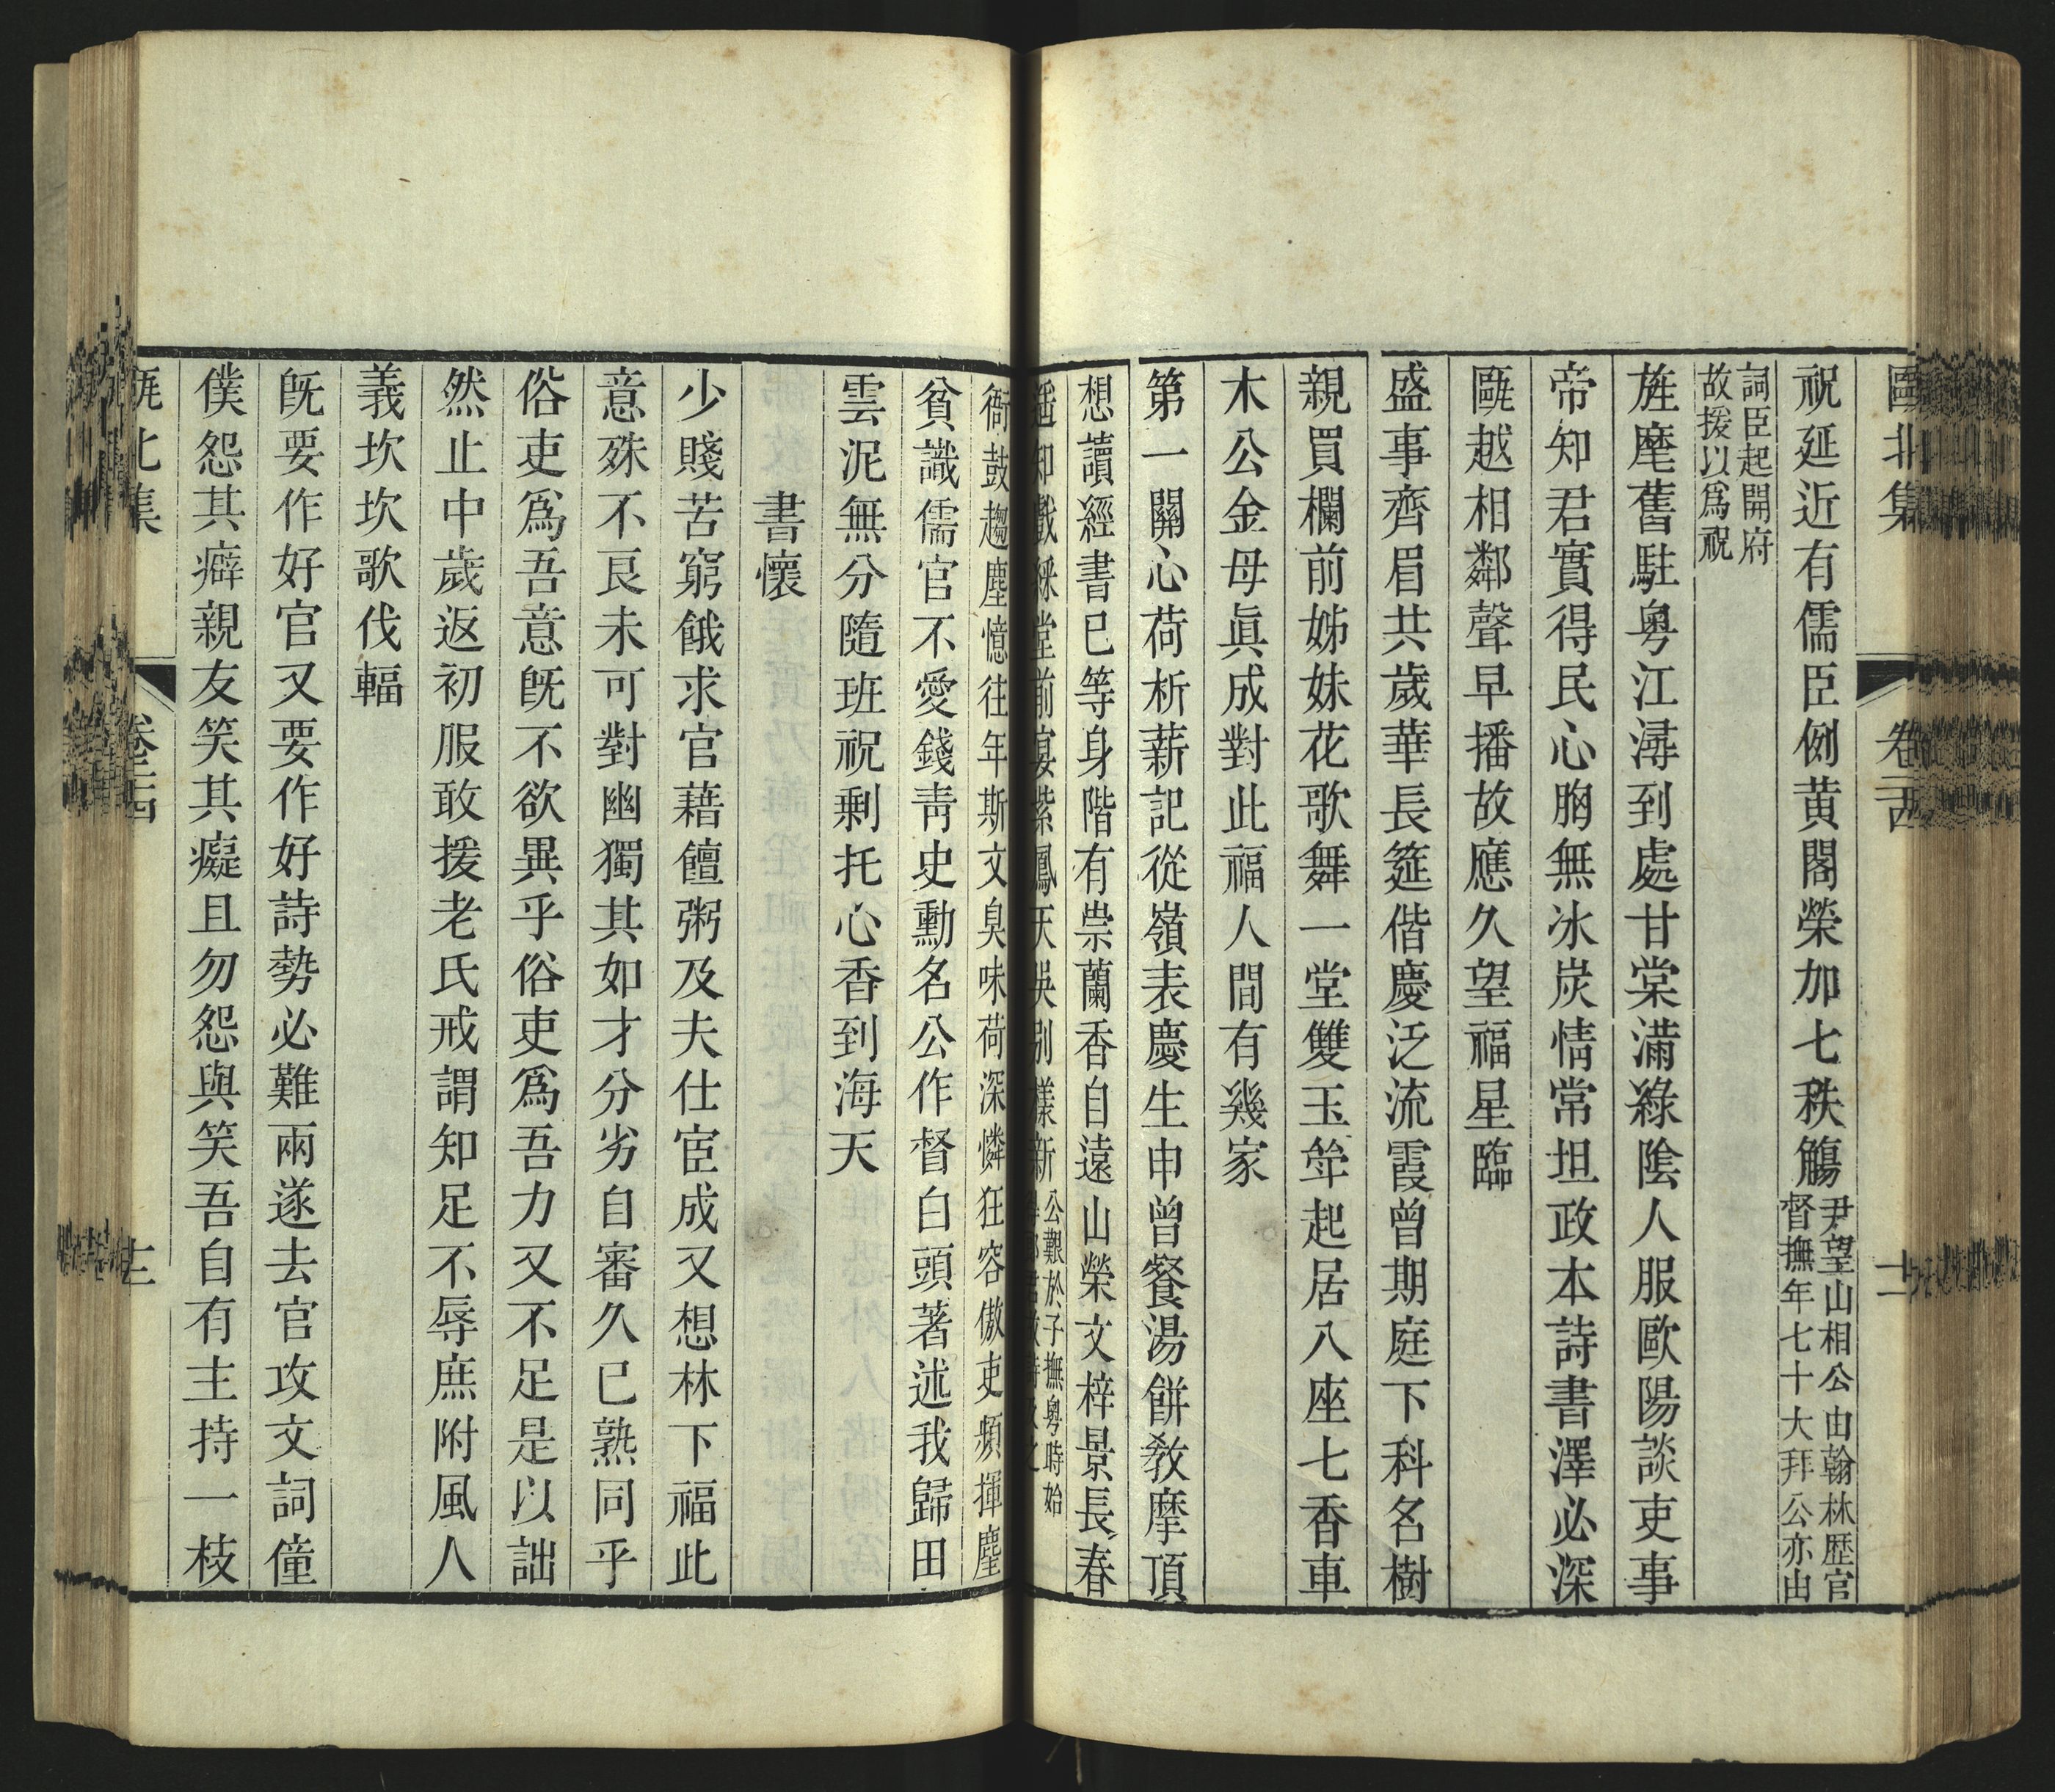 甌北集 卷二四 十二
祝延近有儒臣例黃閣榮加七秩觴尹望山相公由翰林歷官督撫年七十大拜公亦由
詞臣起開府故援以爲祝
旌麾舊駐粵江潯到處甘棠滿綠陰人服歐陽談吏事
帝知君實得民心胸無冰炭情常坦政本詩書澤必深
甌越相鄰聲早播故應久望福星臨
盛事齊眉共歲華長筵偕慶泛流霞曾期庭下科名樹
親買欄前姊妹花歌舞一堂雙玉笄起居八座七香車
木公金母眞成對此福人間有幾家
第一關心荷析薪記從嶺表慶生申曾餐湯餅敎摩頂
想讀經書已等身階有崇蘭香自遠山榮文梓景長春
遥知戲綵堂前宴紫鳳天吳別樣新公艱於子撫粵時始
衙鼓趨塵憶往年斯文臭味荷深憐狂容傲吏頻揮麈
貧識儒官不愛錢靑史勳名公作督白頭著述我歸田
雲泥無分隨班祝剩托心香到海天
書懷
少賤苦窮餓求官藉饘粥及夫仕宦成又想林下福此
意殊不良未可對幽獨其如才分劣自審久已熟同乎
俗吏爲吾意旣不欲異乎俗吏爲吾力又不足是以詘
然止中歲返初服敢援老氏戒謂知足不辱庶附風人
義坎坎歌伐輻
旣要作好官又要作好詩勢必難兩遂去官攻文詞僮
僕怨其癖親友笑其癡且勿怨與笑吾自有主持一枝
甌北集 卷二四 十二